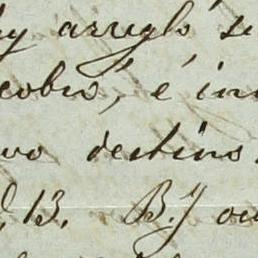 hy arreglo se
cobró, é in
vo destino.
13. B.J ou